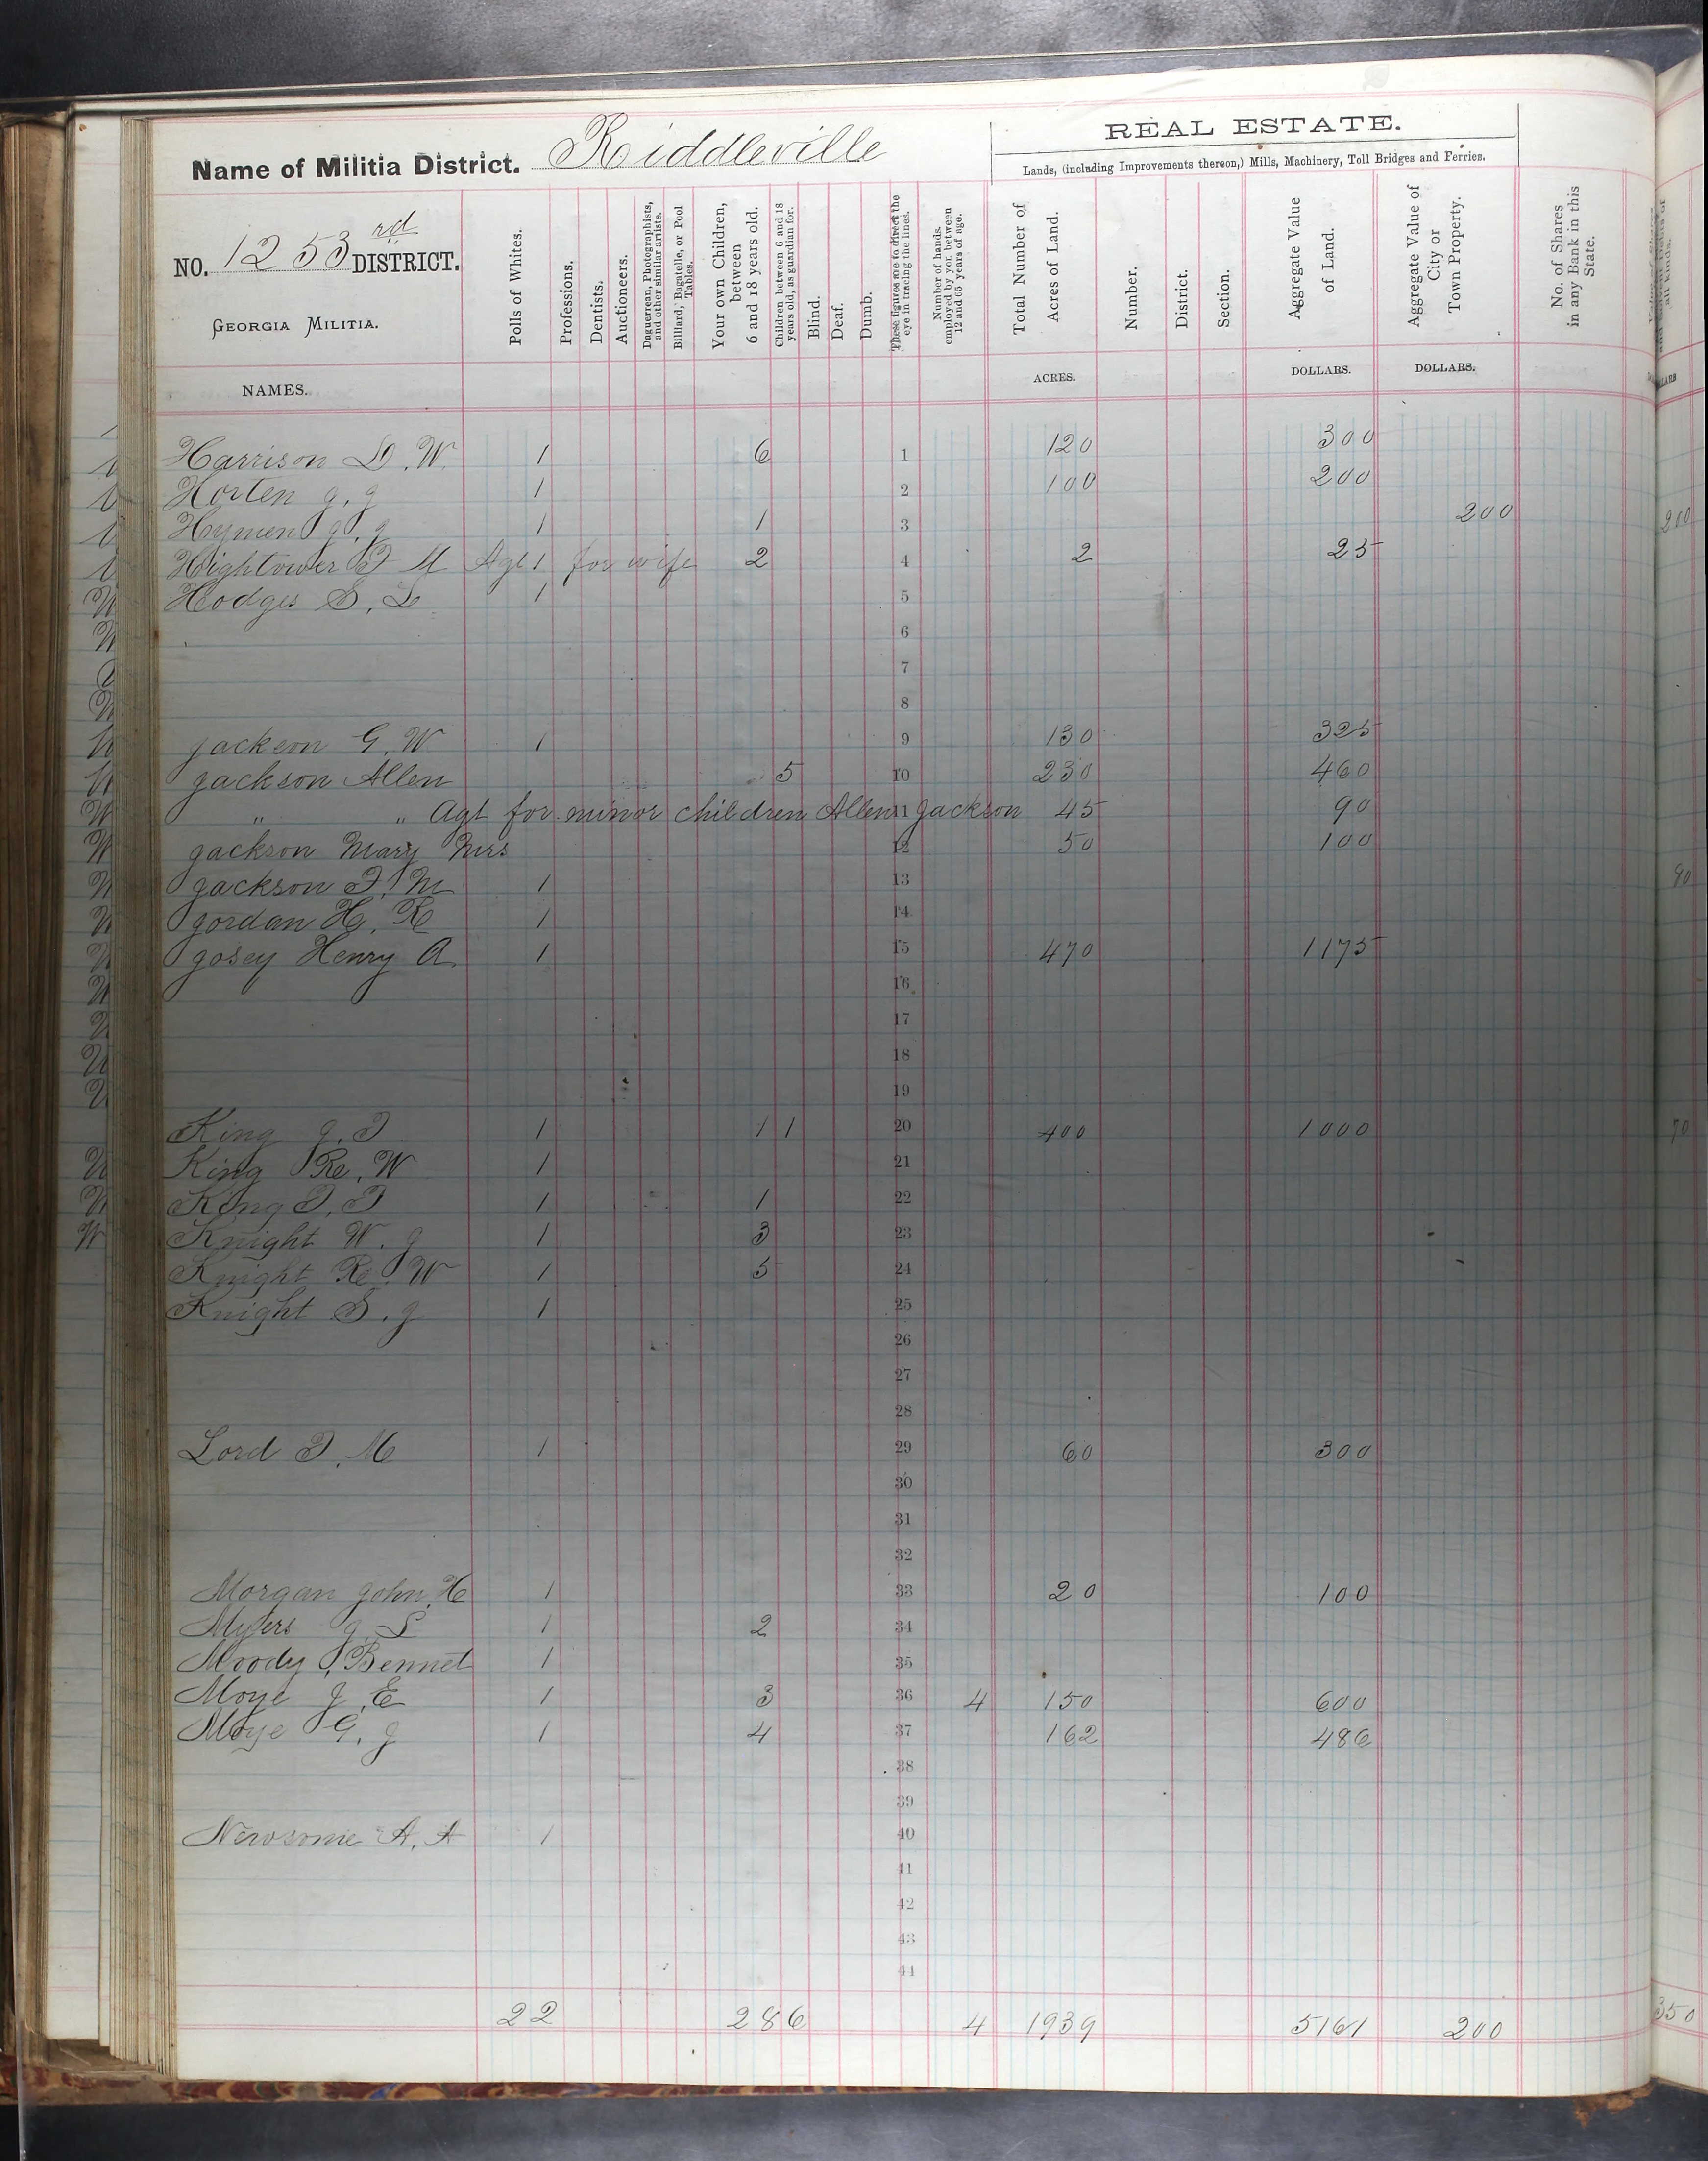 REAL ESTATE.
Name of Militia District. Riddleville
Lands, (including Improvements thereon,) Mills, Machinery, Toll Bridges and Ferries.
NO. 1253rd DISTRICT.
GEORGIA MILITIA.
NAMES.
Polls of Whites.
Professions.
Dentists.
Auctioneers.
Daguerrean, Photographists, and other similar artists.
Billiard, Bagatelle, or Pool Tables.
Your own Children, between 6 and 18 years old.
Children between 6 and 18 years old, as guardian for.
Blind.
Deaf.
Dumb.
These figures are to direct the eye in tracing the lines.
Number of hands. employed by you between 12 and 65 years of age.
Total Number of Acres of Land.
ACRES.
Number.
District.
Section.
Aggregate Value of Land.
DOLLARS.
Aggregate Value of City or Town Property.
DOLLARS.
No. of Shares in any Bank in this State.
Harrison D. W. 1 6 1 120 300
Horten J. J 1 2 100 200
Hymen J. J 1 1 3 200
Hightower T M Agt 1 for wife 2 4 2 25
Hodges S. L 1 5
6
7
8
Jackson G. W 1 9 130 325
Jackson Allen 5 10 230 460
" " Agt for minor children Allen 11 Jackson 45 90
Jackson Mary Mrs 12 50 100
Jackson T. M 1 13
Jordan H. R 1 14
Josey Henry A. 1 15 470 1175
16
17
18
19
King J. T 1 1 1 20 400 1000
King R. W 1 21
King T. T 1 1 22
Knight W. J 1 3 23
Knight R. W 1 5 24
Knight S. J 1 25
26
27
28
Lord T. M 1 29 60 300
30
31
32
Morgan John. H 1 33 20 100
Myers J. S 1 2 34
Moody, Bennet 1 35
Moye J. E 1 3 36 4 150 600
Moye G. J 1 4 37 162 486
38
39
Newsome A. A 1 40
41
42
43
44
22 28 6 4 1939 5161 200